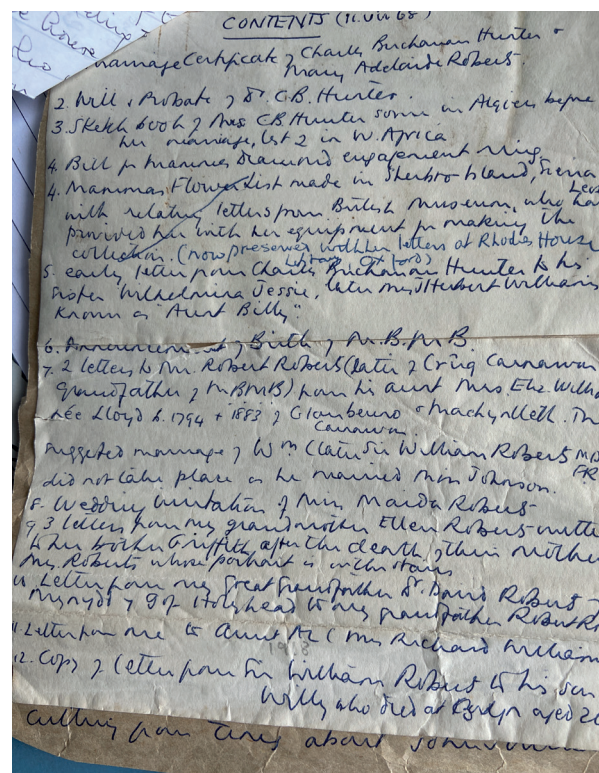 CONTENTS (11.VII 68)
Marriage Certificate of Charles Buchanan Hunter &
Mary Adelaide Roberts.
2. Will & Probate of Dr. C.B. Hunter.
3. Sketch book of Mrs CB Hunter some in Algiers before
her marriage, last 2 in W. Africa
4. Bill for Mamma's diamond engagement ring
4. Mammas Flower List made in Sherbro Island, Sierra
Leo
with relating letters from British Museum, who had
provided her with her equipment for making the
collection. (now preserved with her letters at Rhodes House
Library Oxford)
5. early letter from Charles Buchanan Hunter to his
sister Wilhelmina Jessie, later Mrs J Herbert Williams
known as "Aunt Billy".
6. Announcement of Birth of M.B.M.B.
7. 2 letters to Mr. Robert Roberts (later of Craig Carnarvon
grandfather of MBMB) from his aunt Mrs. Eliz. Willia
née Lloyd b. 1794 + 1883 of & Machynlleth. Th
Carnarvon
suggested marriage of Wm (later Sir William Roberts MD
FR
did not take place as he married Miss Johnson.
8. Wedding invitation of Miss Maida Roberts
9 3 letters from my grandmother Ellen Roberts written
to her brother Griffith, after the death of their mother
Mrs. Roberts whose portrait is with stairs
Letter from my great grandfather Dr. David Roberts
of Holyhead to my grandfather Robert R
11. Letter from me to Aunt (Mrs Richard William
1918
12. Copy of letter from Sir William Roberts to his son
Willy who died at aged 2
cutting from Times about